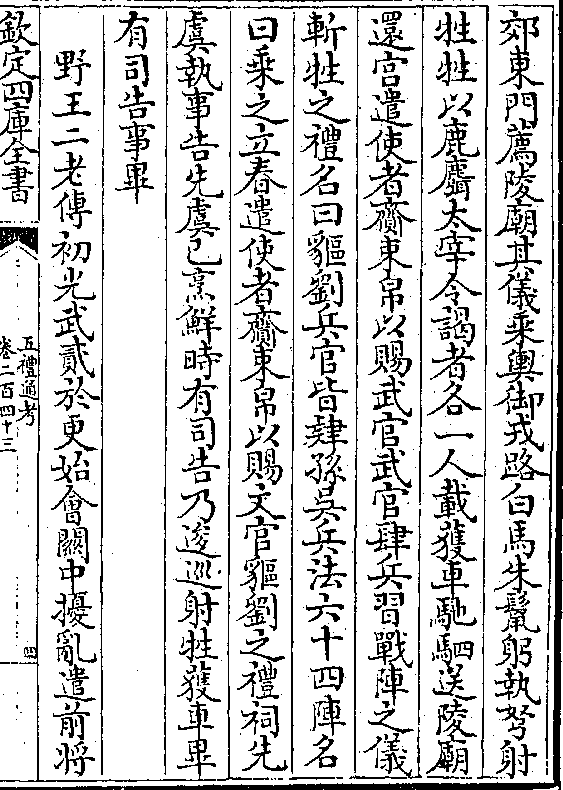 郊東門薦陵廟其儀乘輿御戎路白馬朱鬣躬執弩射
牲牲以鹿麛太宰令謁者各一人載獲車馳駟送陵廟
還宫遣使者齎束帛以賜武官武官肆兵習戰陣之儀
斬牲之禮名曰貙劉兵官皆肄孫吳兵法六十四陣名
曰乘之立春遣使者齎束帛以賜文官貙劉之禮祠先
虞執事告先虞已烹鮮時有司告乃逡巡射牲獲車畢
有司告事畢
野王二老傳初光武貳於更始會關中擾亂遣前將
欽定四庫全書
五禮通考
卷二百四十三
四